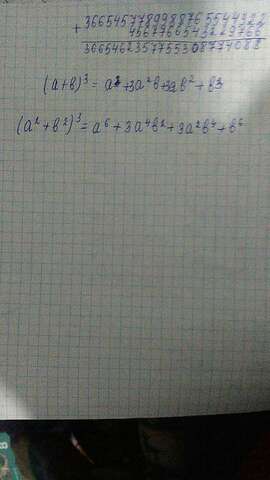 3665457789988765544322
+ 4567766543229766
3665462357755308774088
(a+b)³ = a³+3a²b+3ab²+b³
(a²+b²)³ = a⁶+3a⁴b²+3a²b⁴+b⁶